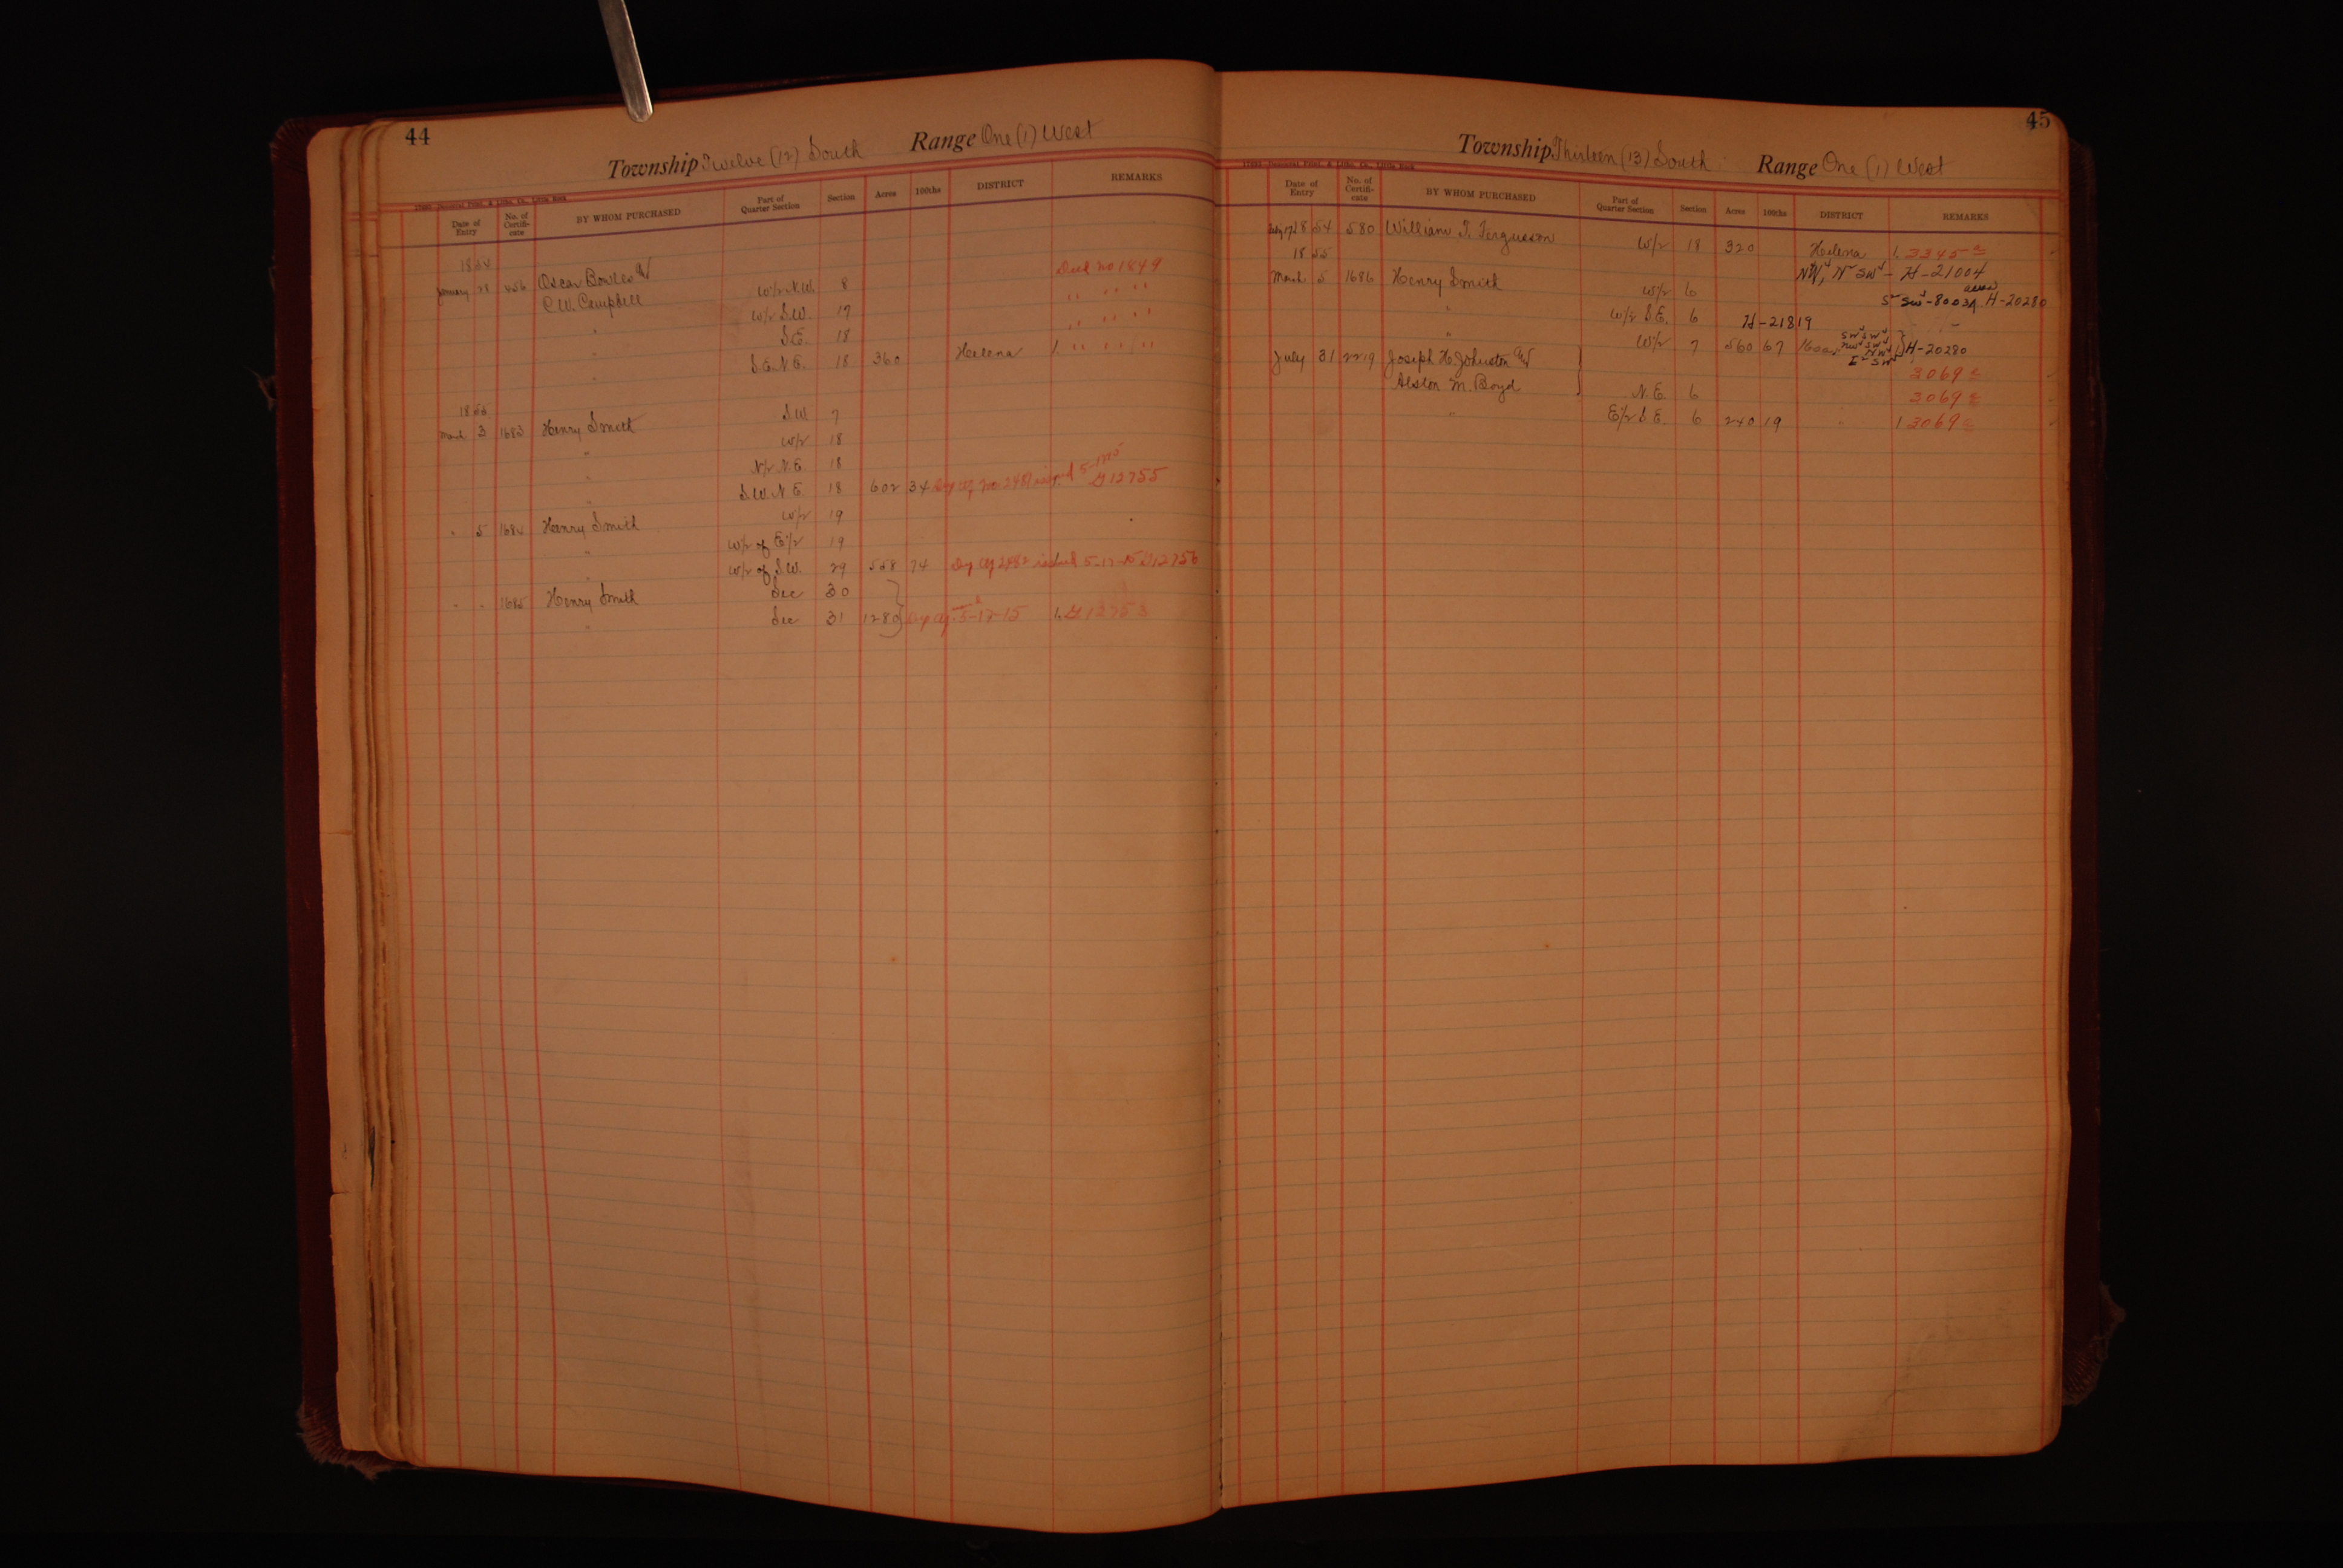 44
Township Twelve (12) South Range One (1) West
Date of Entry No. of Certificate BY WHOM PURCHASED Part of Quarter Section Section Acres 100ths DISTRICT REMARKS
1854
January 28 456 Oscar Bowles & Deed no 1849
C.W. Campbell W/2 N.W. 8 " " " "
" W/2 S.W. 17 " " " "
" S.E. 18
" S.E.N.E. 18 360 Helena 1. " " " "
1855
March 3 1683 Henry Smith S.W. 7
" W/2 18
" N/2 N.E 18
" S.W. N.E 18 602 34 G12755
" 5 1684 Henry Smith W/2 19
" W/2 of E/2 19
" W/2 of S.W. 29 558 74
" " 1685 Henry Smith Sec 30
" Sec 31 1280 5-17-15
45
Township Thirteen (13) South Range One (1) West
Date of Entry No. of Certificate BY WHOM PURCHASED Part of Quarter Section Section Acres 100ths DISTRICT REMARKS
July 17 1854 580 William T. Fergusson W/2 18 320 Helena 1. 3345
1855 NW, N2 SW4 - H-21004
March 5 1686 Henry Smith W/2 6 S2 SW4 - 8003A H-20280
" W/2 S.E. 6 H-21819
" W/2 7 560 67 H-20280
July 31 2219 Joseph H. Johnston & 3069
Alston M. Boyd N.E. 6 3069
" E/2 S.E. 6 240 19 " 1 3069